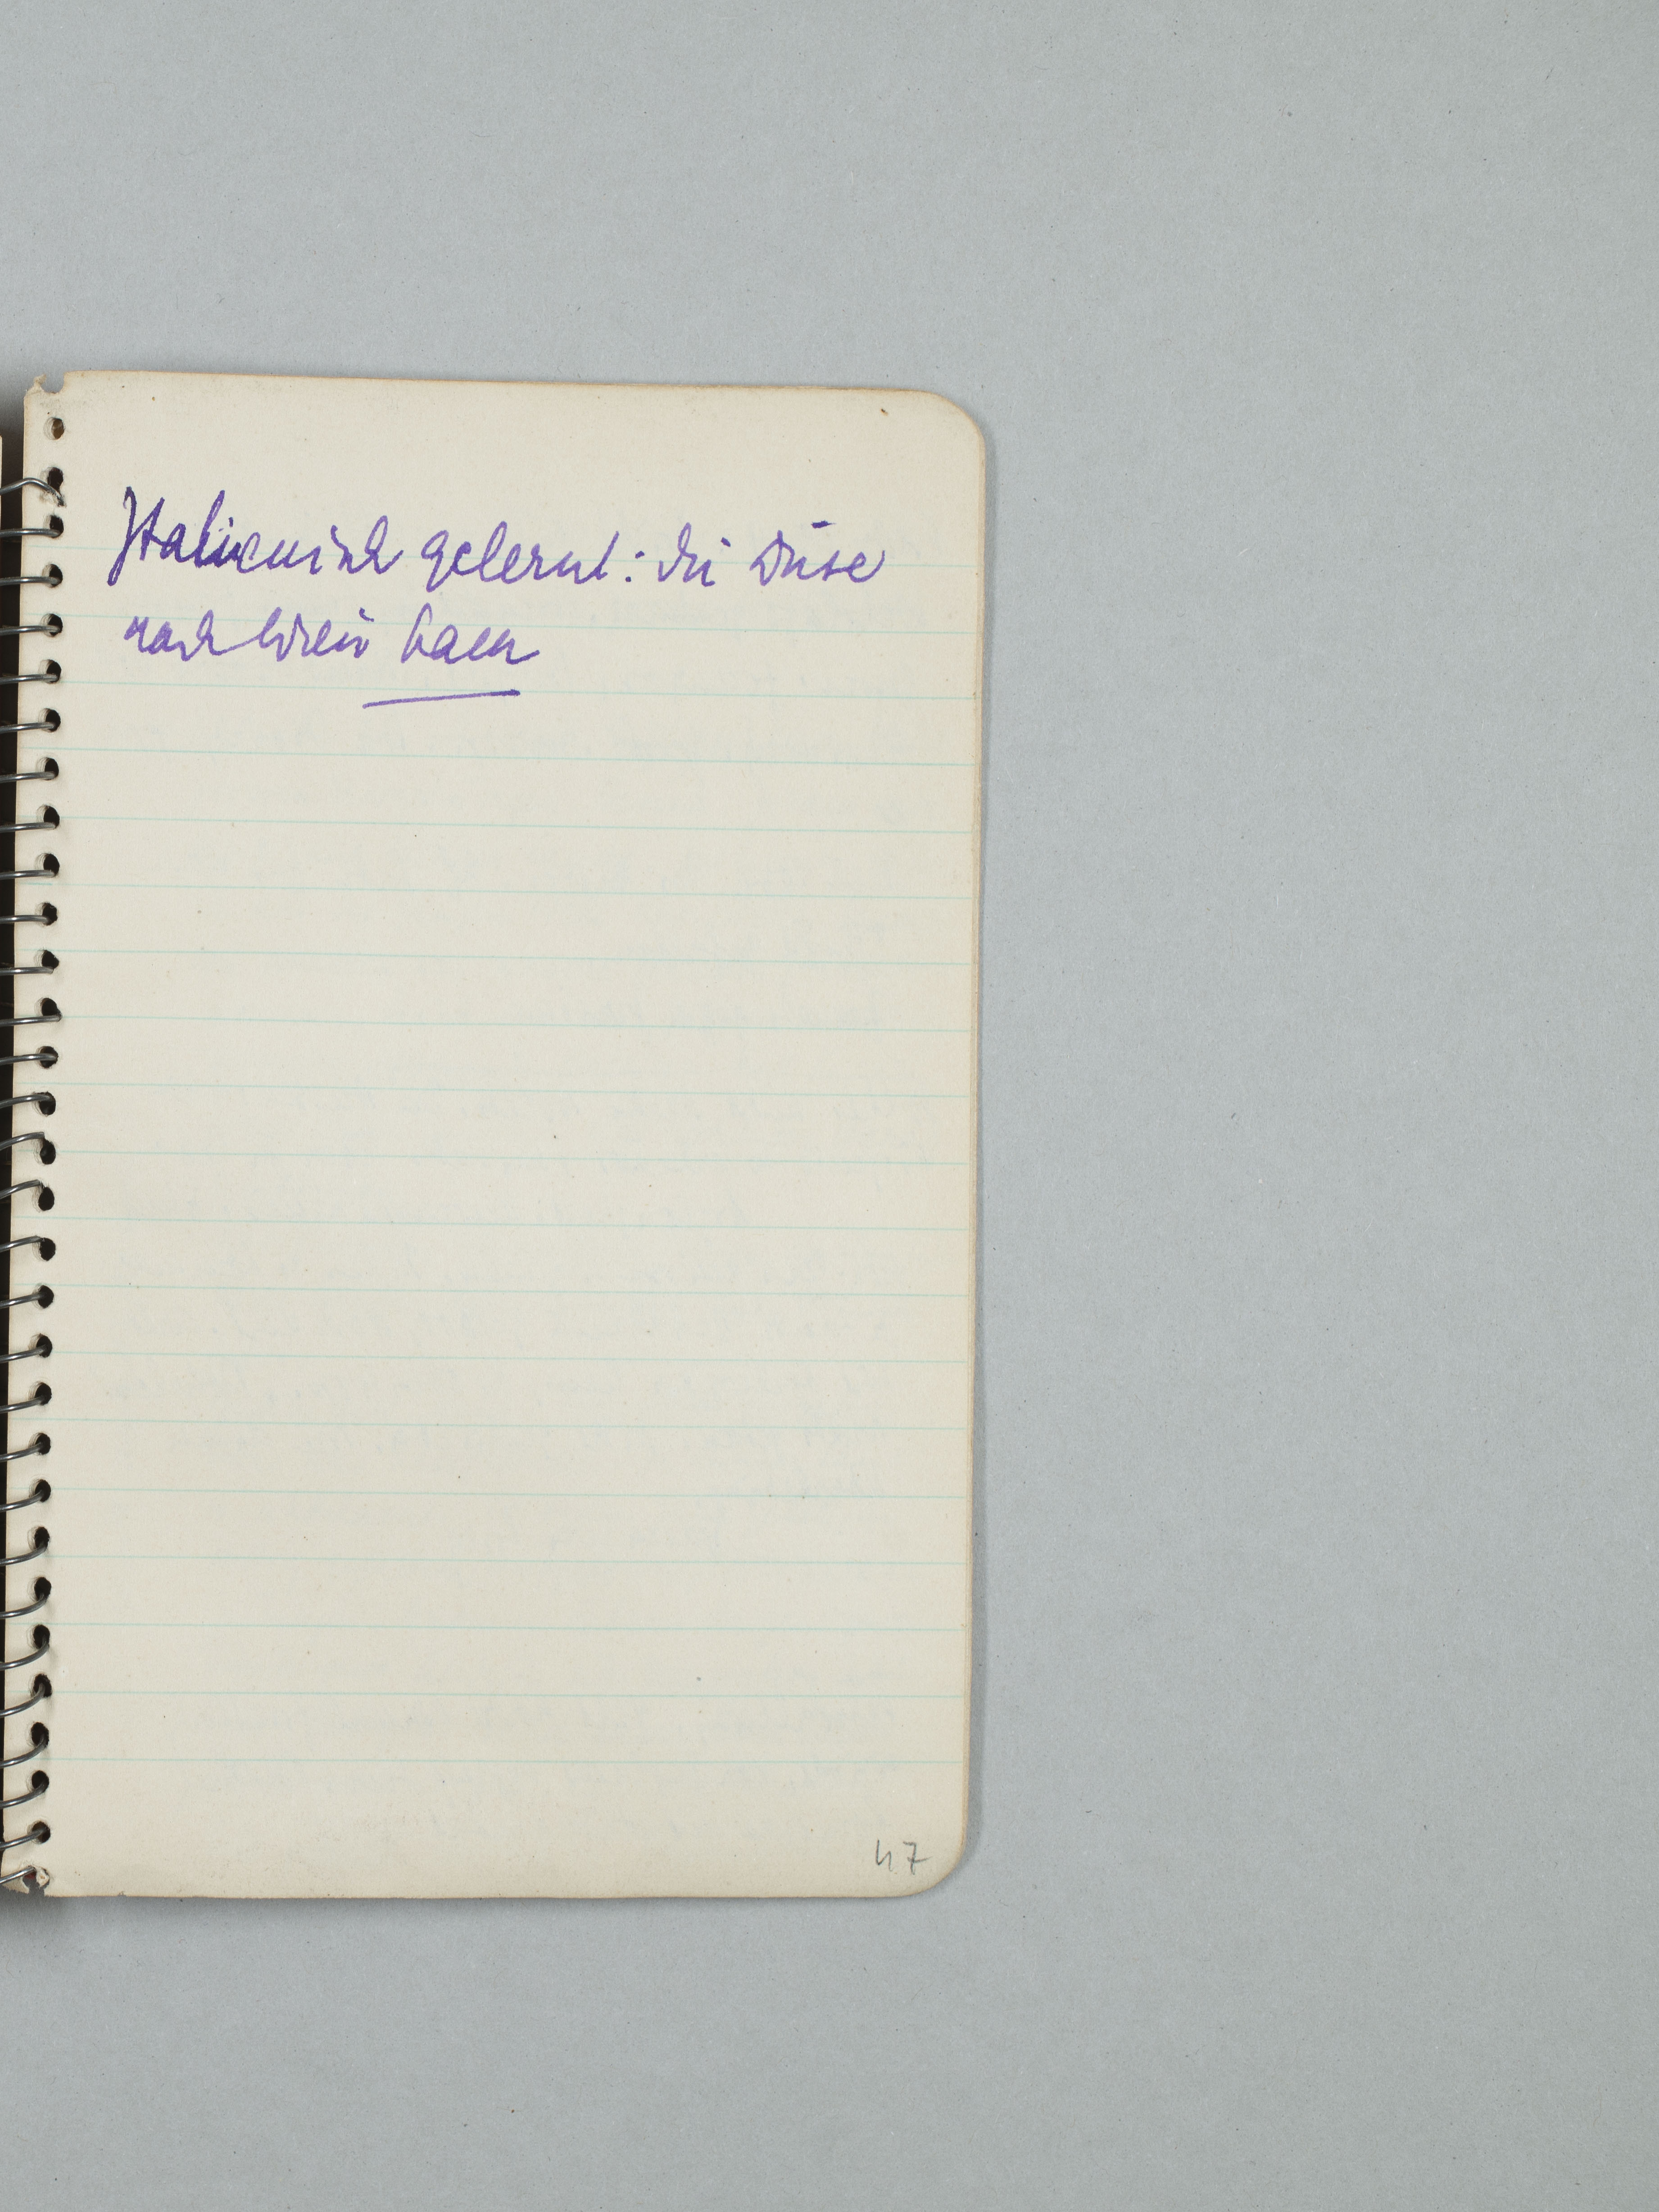 Italienisch gelernt: die Duse
nach Wien kam
47